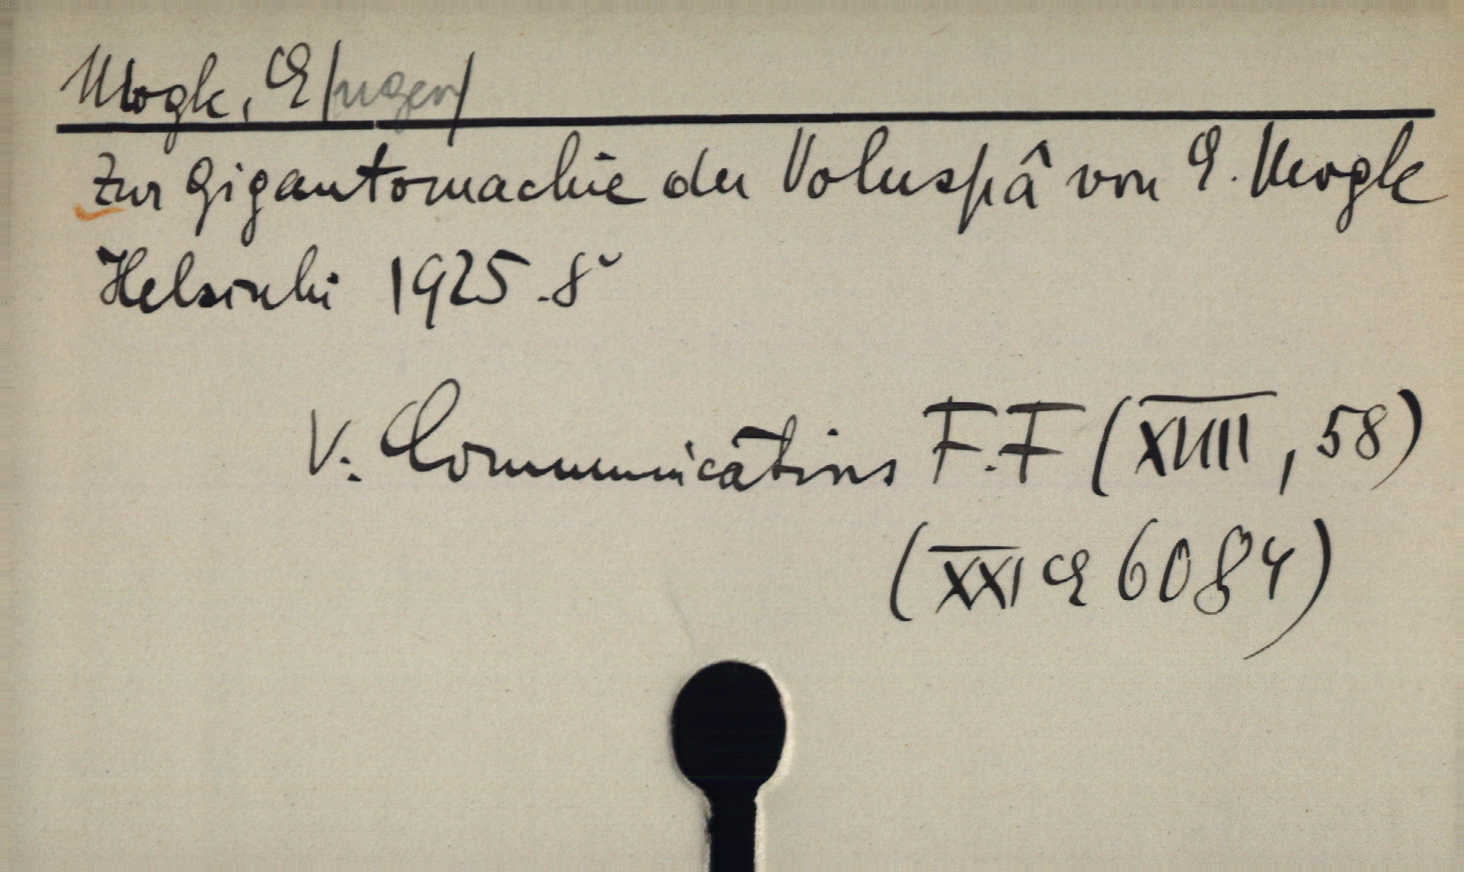 Mogk, E/ugen/
Zur Gigantomachie der Voluspâ von E. Mogk
Helsinki 1925. 8°
V. Communications F.F (XVIIII, 58)
(XXI E 6084)